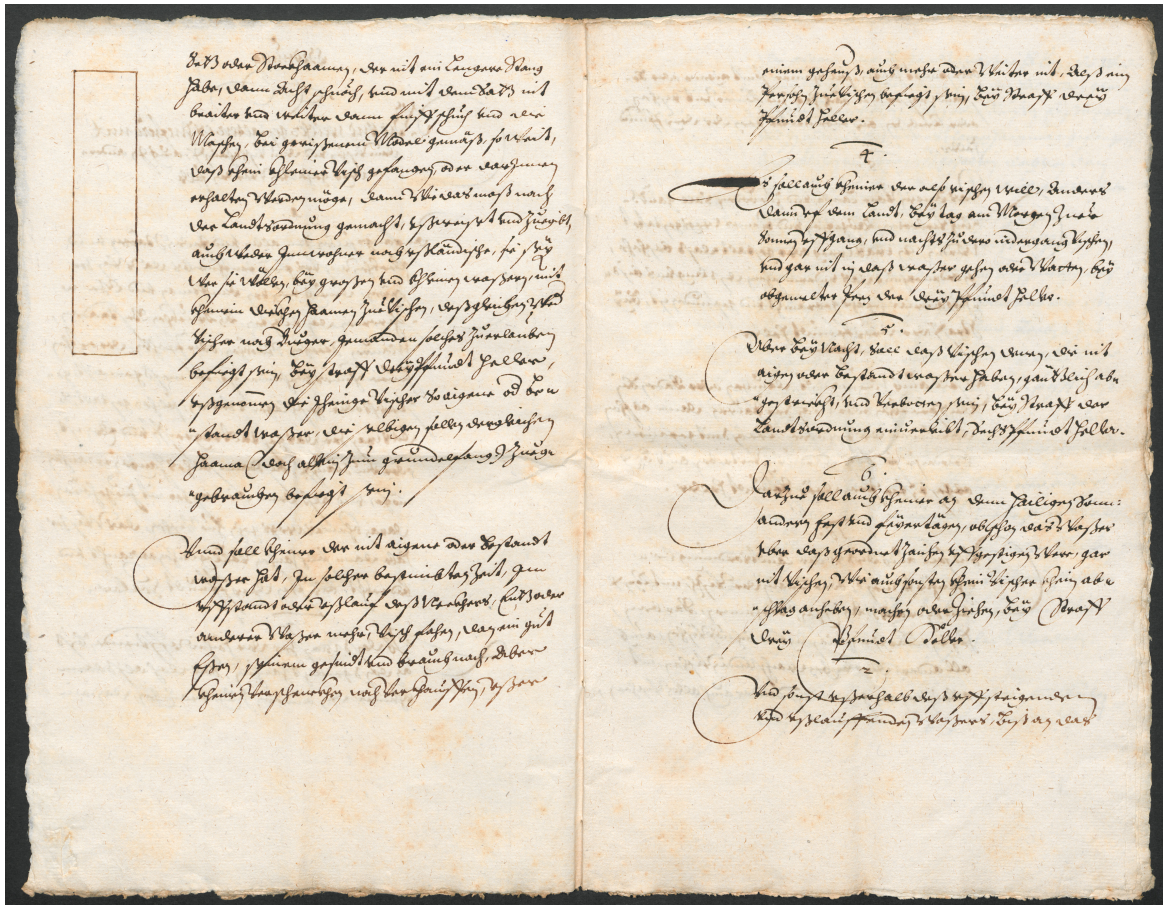 Setz oder Storchhaamen, der nit ein Lengere Stang
habe, dann Acht schuoch, vnd mit dem Sackh nit
braiter vnd weiter dann fünff schuch vnd die
Maschen, bei gerißenem Model gemäß, so weit,
daß khein khleiner Visch gefangen, oder darInnen
erhalten werden möge, dann wie das maß nach
der Landtsordnung gemacht, vßweiset vnd zuegibt,
auch weder Innwohner noch vßländische, sie sey
wer sie wöllen, bey großen vnd khleinen waßern, mit
kheinem solchen Haamen zue Vischen, deßgleichen
Vischer noch Burger, Jemanden solches zuerlauben
befuegt sein, bey straff drey Pfundt Heller,
vßgenommen die Jhenige Vischer so aigene od be
standt waßer, die selbigen sollen dergleichen
Haama (doch allein zum grundelfang) zue
gebrauchen befuegt sein.
Vnnd soll kheiner der nit aigene oder bestandt
waßer hat, In solcher bestimbten Zeit, Im
vffstandt oder vßlauf deß Neckhers, Entz oder
anderer Waßer mehr, Visch fahen, dan ein gut
Eßen, seinem gesindt vnd brauch nach, Aber
kheinen verschenckhen noch verkhauffen, vßer
einem gehauß, auch mehr oder weiter nit, Alß ein
Persohn zue Vischen befuegt sein, bey Straff drey
Pfundt Heller.
4.
Es soll auch kheiner der also vischen will, Anders
dann vf dem Landt, bey tag am Morgen zue
Sonnen vffgang, vnd nachts zu dero nidergang vischen,
vnd gar nit in daß waßer gehen oder Watten, bey
obgemelter Peen der drey Pfundt Heller.
5.
Aber bey Nacht, soll daß Vischen denen, die nit
aigen oder bestandt waßer haben, gäntzlich ab
gestrickht, vnd verbotten sein, bey Straff der
Landtsordnung einuerleibt, Sechs Pfundt Heller.
6.
Darzue soll auch kheiner an denn Hailigen Sonn:
andern Fest vnd feyertägen, obschon das waßer
vber daß geordnet Zaichen vffgestigen were, gar
nit Vischen, wie auch sonsten khein Vischer khein ab
schlag anheben, machen oder ziehen, bey Straff
drey Pfundt Heller.
7.
Vnd sonst vßerhalb deß vffsteigenden
vnd vßlauffenden waßers, biß an das